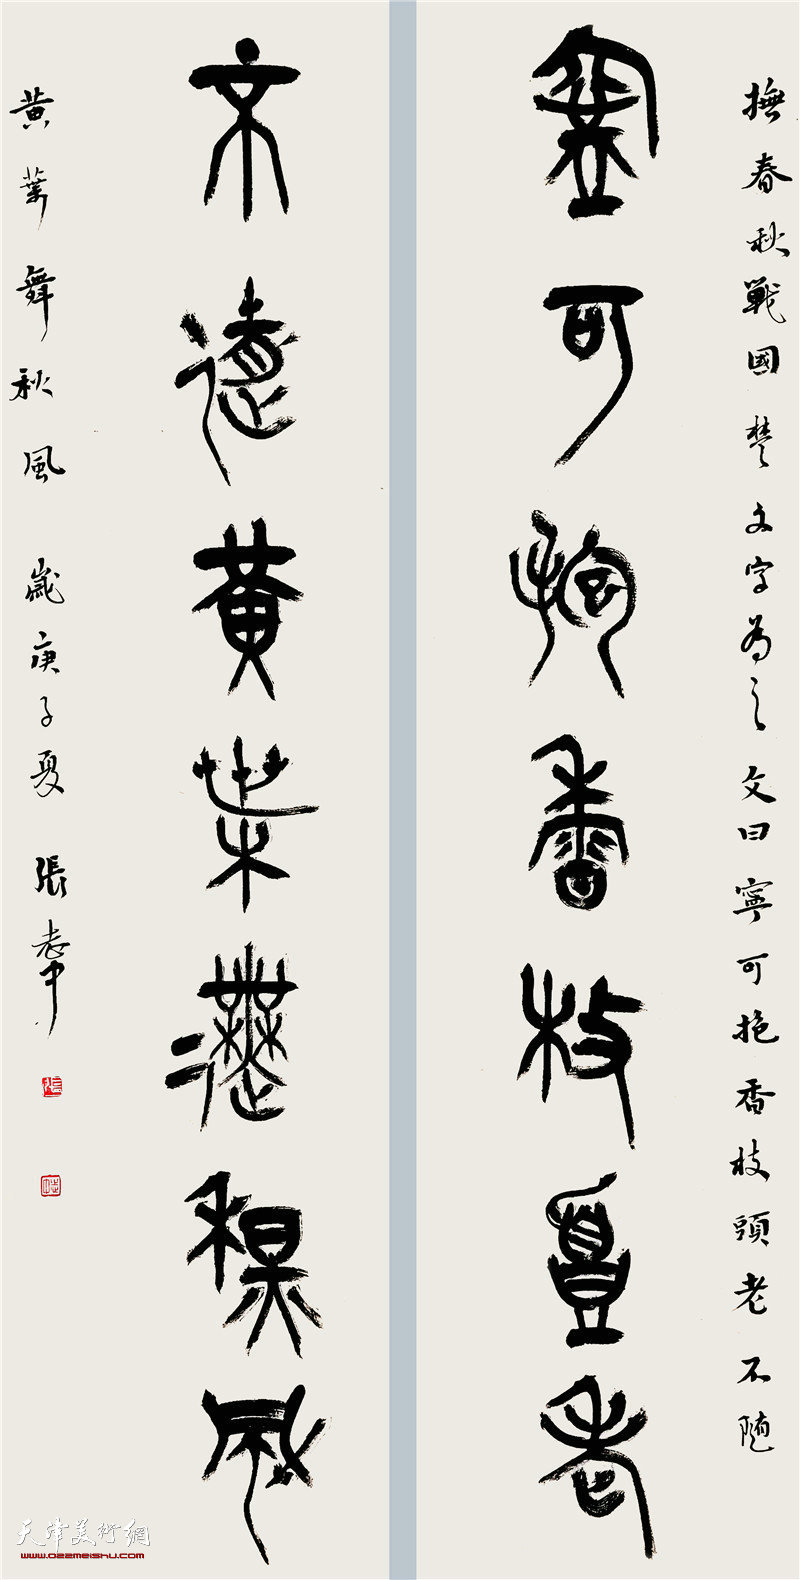 撫春秋戰國楚文字為之文曰寧可抱香枝頭老不隨
寧可抱香枝頭老
不隨黃葉舞秋風
黃葉舞秋風 歲庚子夏 張
天津美術網
www.022meishu.com